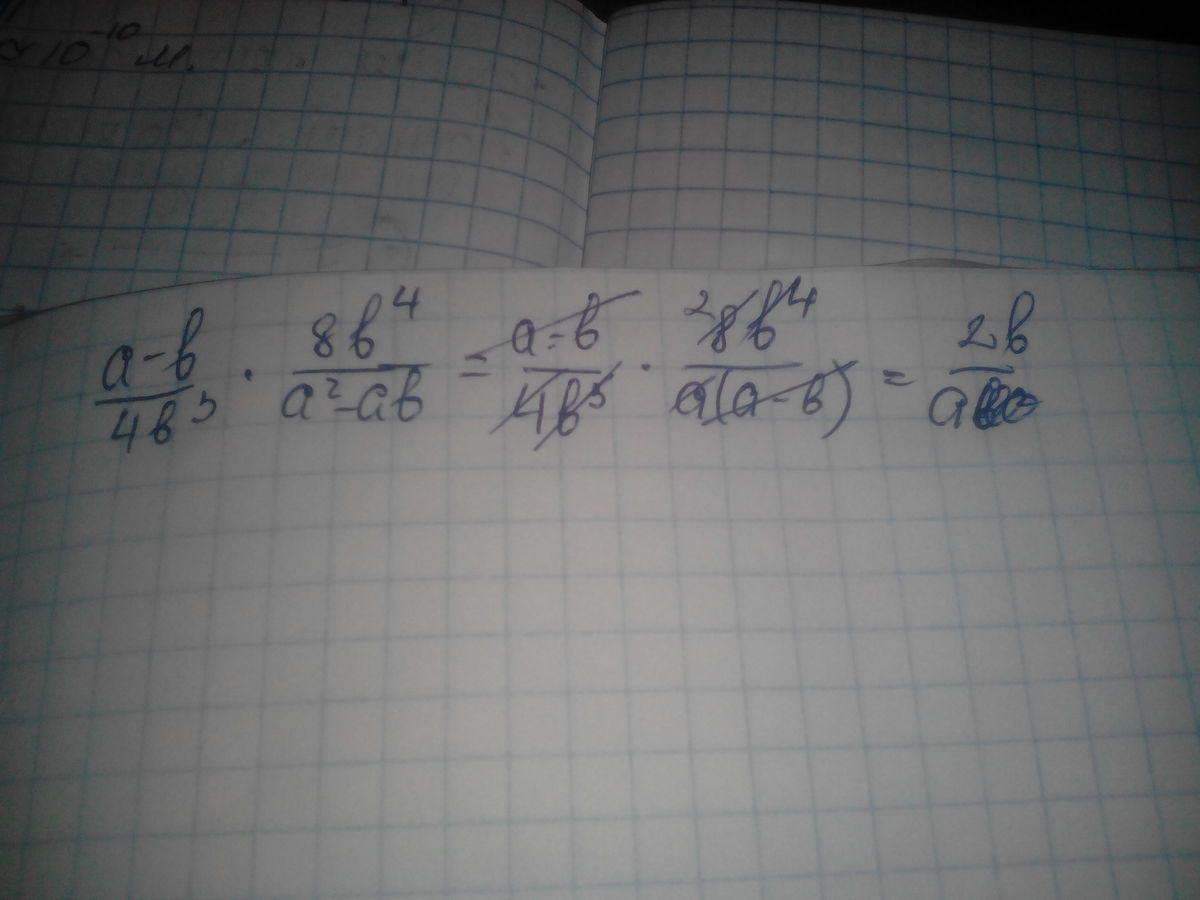 ≈ 10⁻¹⁰ м.
a-b/4b³ · 8b⁴/a²-ab = a-b/4b³ · ²8b⁴/a(a-b) = 2b/a